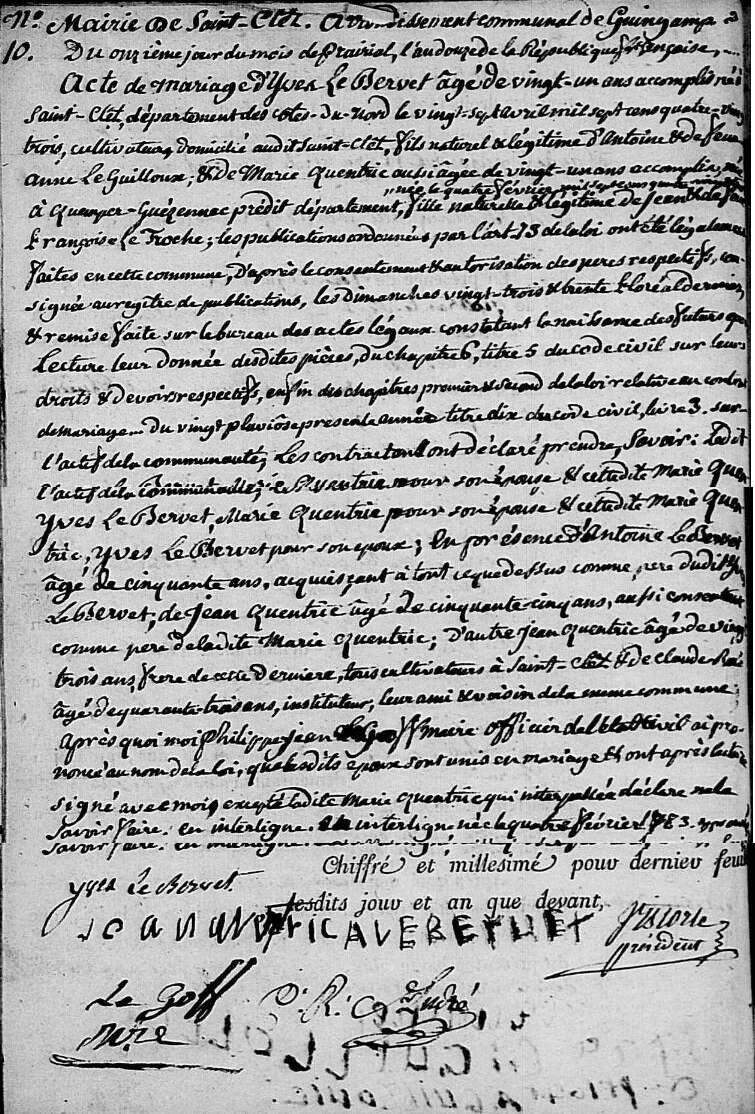 N.º Mairie de Saint-Clet. Arrondissement communal de Guingamp
10. Du onzième jour du mois de Prairial, l'an douze de la République française,
Acte de mariage d'Yves Le Bervet âgé de vingt-un ans accomplis, né à
Saint-Clet, département des Côtes-du-Nord le vingt-sept avril mil sept cens quatre-vingt
trois, cultivateur, domicilié audit Saint-Clet, fils naturel & légitime d'Antoine & de feue
Anne Le Guilloux; & de Marie Quentric aussi âgée de vingt-un ans accomplis, née
née le quatre février mil sept cens quatre
à Quemper-Guézennec prédit département, fille naturelle & légitime de Jean & de feue
françoise Le Troche; les publications ordonnées par l'art 73 de la loi ont été légalement
faites en cette commune, d'après le consentement & autorisation des peres respectifs, con-
signée au regître de publications, les dimanches vingt-trois & trente floréal dernier,
& remise faite sur le bureau des actes légaux constatant la naissance des futurs que
Lecture leur donnée desdites pièces, du chapitre 6, titre 5 du code civil sur leurs
droits & devoirs respectifs, enfin des chapitres premier & second de la loi relative au contrat
de mariage du vingt pluviôse présente année titre dix du code civil, livre 3. sur
l'actif de la communauté; Les contractans ont déclaré prendre, Savoir: Ledit
l'actif de la communauté;
Yves Le Bervet Marie Quentric pour son épouse & cette dite Marie Quen
tric, Yves Le Bervet pour son epoux; En présence d'Antoine Le Bervet
âgé de cinquante ans, acquiesçant à tout ce que dessus comme pere dudit Yves
Le Bervet; de Jean Quentric âgé de cinquante cinq ans, aussi consentant
comme pere de ladite Marie Quentric; d'autre Jean Quentric âgé de vingt
trois ans, frere de cette derniere, tous cultivateurs à Saint-Clet & de Claude
âgé de quarante-trois ans, instituteur, leur ami & voisin de la meme commune
Après quoi moi Philippe Jean Le Goff maire officier de l'état civil ai pro-
noncé au nom de la loi, que lesdits époux sont unis en mariage & ont après lecture
signé avec moi, excepté ladite Marie Quentric qui interpellée déclare ne le
savoir faire. en interligne. interligne née le quatre février 1783.
savoir faire.
Chiffré et millesimé pour dernier feuil
yves Le Bervet
lesdits jour et an que devant,
président
Le Goff
mre